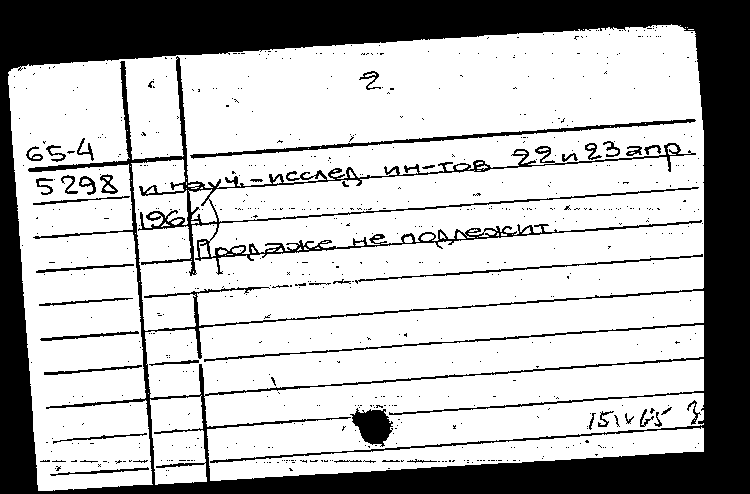 2.
65-4
5298 и науч.-исслед. ин-тов 22 и 23 апр.
1964)
Продаже не подлежит.